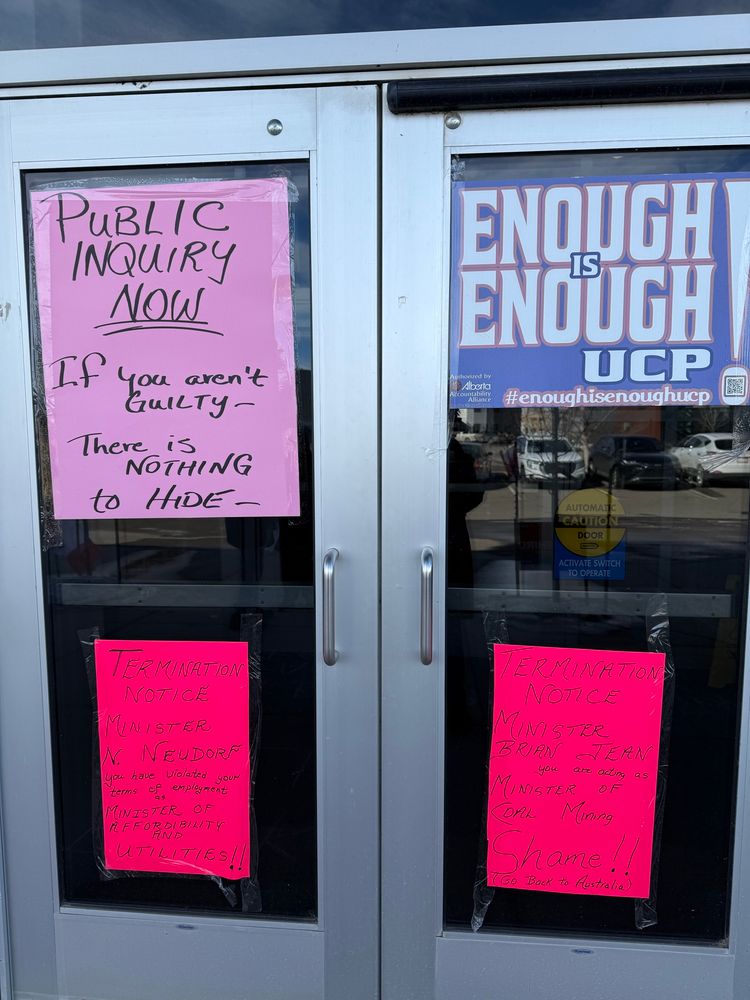 PUBLIC
INQUIRY
NOW
If you aren't
GUILTY-
There is
NOTHING
to HIDE-
ENOUGH
IS
ENOUGH!
UCP
Authorized by
Alberta
Accountability
Alliance
#enoughisenoughucp
AUTOMATIC
CAUTION
DOOR
ACTIVATE SWITCH
TO OPERATE
TERMINATION
NOTICE
MINISTER
N. NEUDORF
you have violated your
terms of employment
as
MINISTER OF
AFFORDIBILITY
AND
UTILITIES!!
TERMINATION
NOTICE
MINISTER
BRIAN JEAN
you are acting as
MINISTER OF
COAL Mining
Shame!!
(Go Back to Australia)